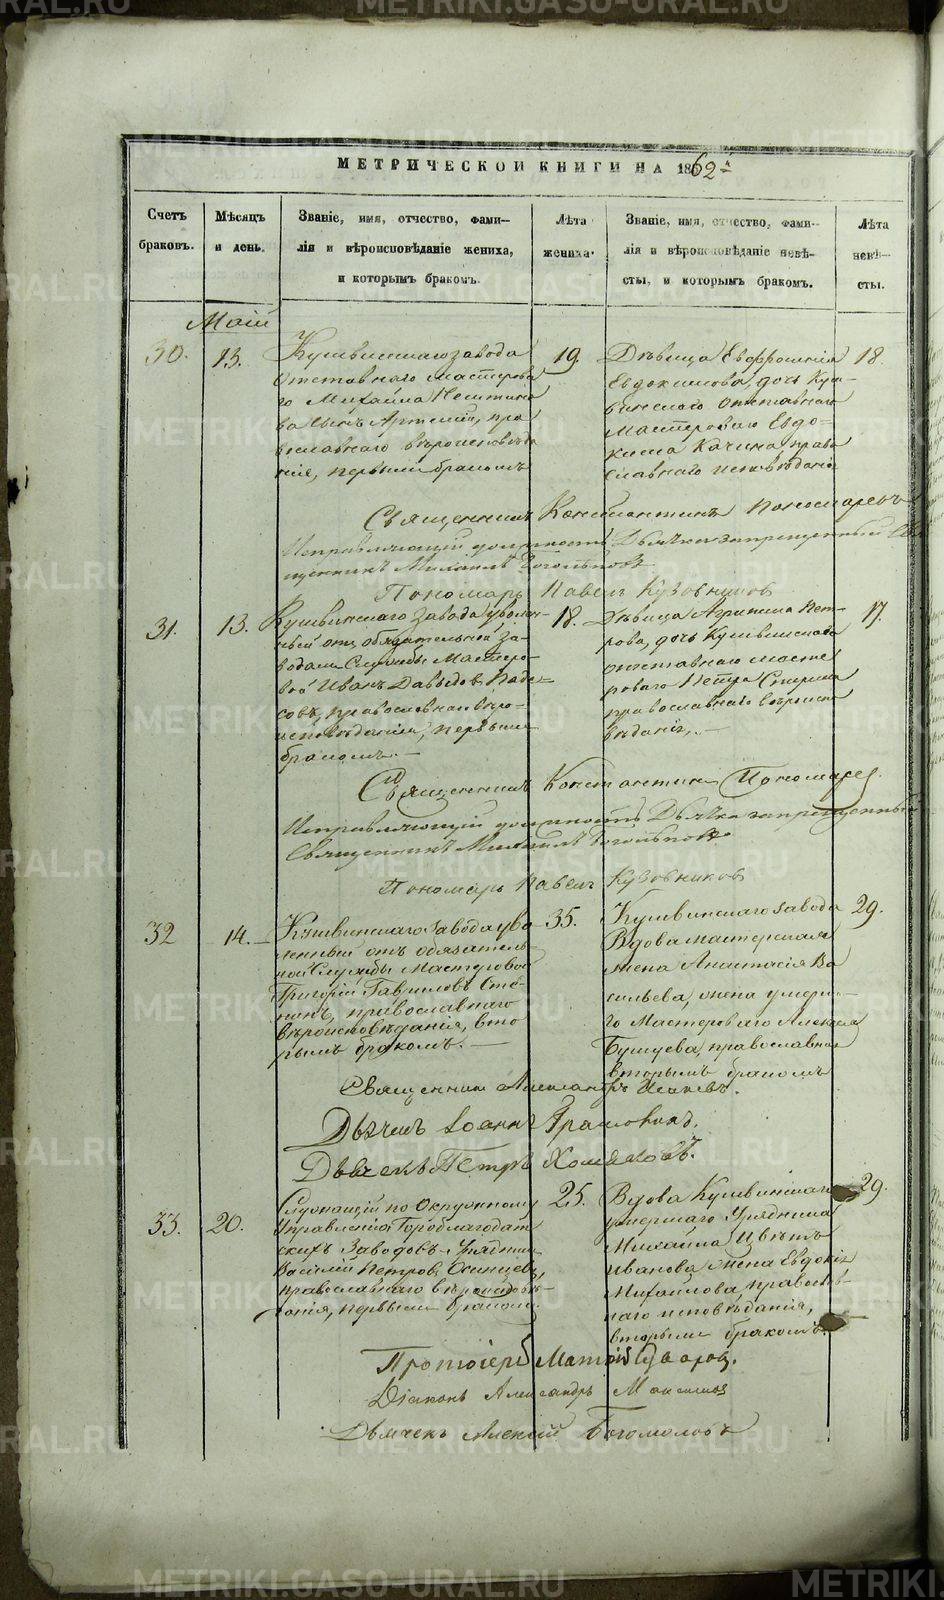 МЕТРИЧЕСКОЙ КНИГИ НА 1862
Счетъ
браковъ.
Мѣсяцъ
и день.
Званіе, имя, отчество, фами-
лія и вѣроисповѣданіе жениха,
и которымъ бракомъ.
Лѣта
жениха.
Званіе, имя, отчество, фами-
лія и вѣроисповѣданіе невѣ-
сты, и которымъ бракомъ.
Лѣта
невѣ-
сты.
Маій
30.
13.
Кушвинскаго завода
отставнаго мастерова
го Михаила
сынъ Артемій, пра
вославнаго вѣроисповѣда
нія, первымъ бракомъ
19.
Дѣвица Евфросинія
Евдокимова, дочь Куш-
винскаго отставнаго
мастероваго Евдо-
кима Качина, право
славнаго исповѣданія
18.
Священникъ Константинъ Пономаревъ
Исправляющій должность Дьячка запрещенный Свя
щенникъ Михаилъ
Пономарь Павелъ Кузовниковъ
31.
13.
Кушвинскаго завода уволен-
ный отъ обязательной за-
водской службы Мастеро-
вой Иванъ Давыдовъ
православнаго вѣро-
исповѣданія, первымъ
бракомъ. —
18.
Дѣвица Агрипина Пет-
рова, дочь Кушвинскаго
отставнаго масте
роваго Петра Спирина
православнаго вѣроиспо
вѣданія. —
17.
Священникъ Константинъ Пономарев.
Исправляющій должность Дьячка запрещенный
Священникъ Михаилъ
Пономарь Павелъ Кузовников
32
14. —
Кушвинскаго завода уво
ленный отъ обязатель-
ной службы Мастеровой
Григорій Гавриловъ
православнаго
вѣроисповѣданія, вто
рымъ бракомъ. —
35.
Кушвинскаго завода
Вдова мастерская
жена Анастасія Ва
сильева, жена умерша-
го Мастероваго Алексѣя
православнаго
вторымъ бракомъ
29.
Священникъ Александръ
Дьячекъ Іоаннъ
Дьячекъ Петръ Хомяковъ.
33.
20.
Служащій по Окружному
Управленію Гороблагодат
скихъ Заводовъ Урядникъ
Василій Петровъ Осинцевъ,
православнаго вѣроисповѣ-
данія, первымъ бракомъ.
25.
Вдова Кушвинскаго
умершаго Урядника
Михаила
Иванова жена Евдокія
Михайлова, православ-
наго исповѣданія,
вторымъ бракомъ.
29.
Протоіерей
Діаконъ Александръ
Дьячекъ Алексій Богомоловъ